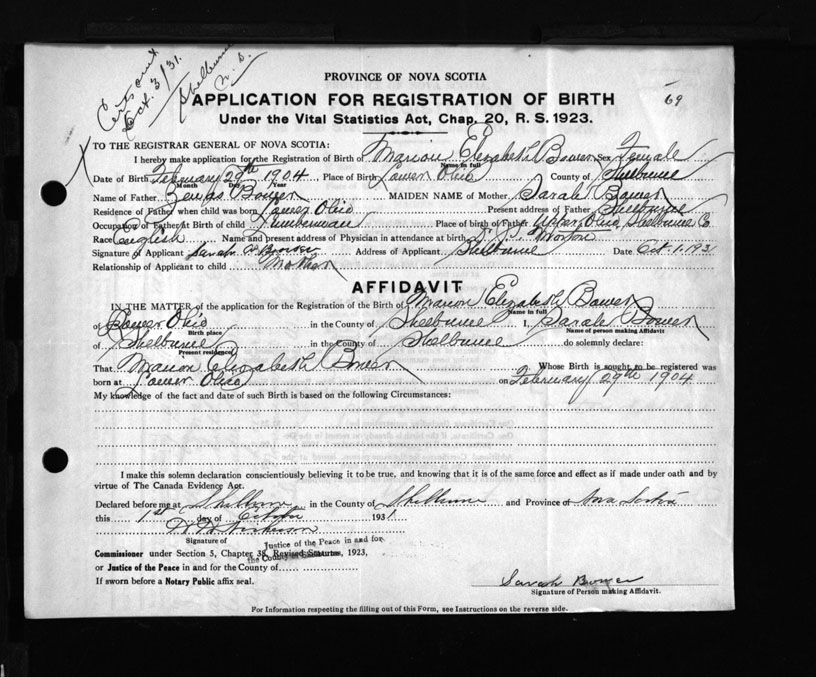 Oct. 3/31.
Shelburne
N. S.
69
PROVINCE OF NOVA SCOTIA
APPLICATION FOR REGISTRATION OF BIRTH
Under the Vital Statistics Act, Chap. 20, R. S. 1923.
TO THE REGISTRAR GENERAL OF NOVA SCOTIA:
I hereby make application for the Registration of Birth of Marion Elizabeth Bower Sex Female
Name in full
Date of Birth February 29th 1904 Place of Birth Lower Ohio County of Shelburne
Month Day Year
Name of Father Bower MAIDEN NAME of Mother Sarah Bower
Residence of Father when child was born Lower Ohio Present address of Father Shelburne
Occupation of Father at Birth of child Lumberman Place of birth of Father Upper Ohio Shelburne Co
Race English Name and present address of Physician in attendance at birth Morton
Signature of Applicant Sarah Bower Address of Applicant Shelburne Date Oct. 1. 1931
Relationship of Applicant to child Mother
AFFIDAVIT
IN THE MATTER of the application for the Registration of the Birth of Marion Elizabeth Bower
Name in full
of Lower Ohio in the County of Shelburne I, Sarah Bower
Birth place Name of person making Affidavit
of Shelburne in the County of Shelburne do solemnly declare:
Present residence
That Marion Elizabeth Bower Whose Birth is sought to be registered was
born at Lower Ohio on February 29th 1904
My knowledge of the fact and date of such Birth is based on the following Circumstances:
I make this solemn declaration conscientiously believing it to be true, and knowing that it is of the same force and effect as if made under oath and by
virtue of The Canada Evidence Act.
Declared before me at Shelburne in the County of Shelburne and Province of Nova Scotia
this 1st day of October 1931
Signature of
Justice of the Peace in and for
Commissioner under Section 5, Chapter 38, Revised Statutes, 1923,
the County of
or Justice of the Peace in and for the County of
If sworn before a Notary Public affix seal.
Sarah Bower
Signature of Person making Affidavit.
For Information respecting the filling out of this Form, see Instructions on the reverse side.